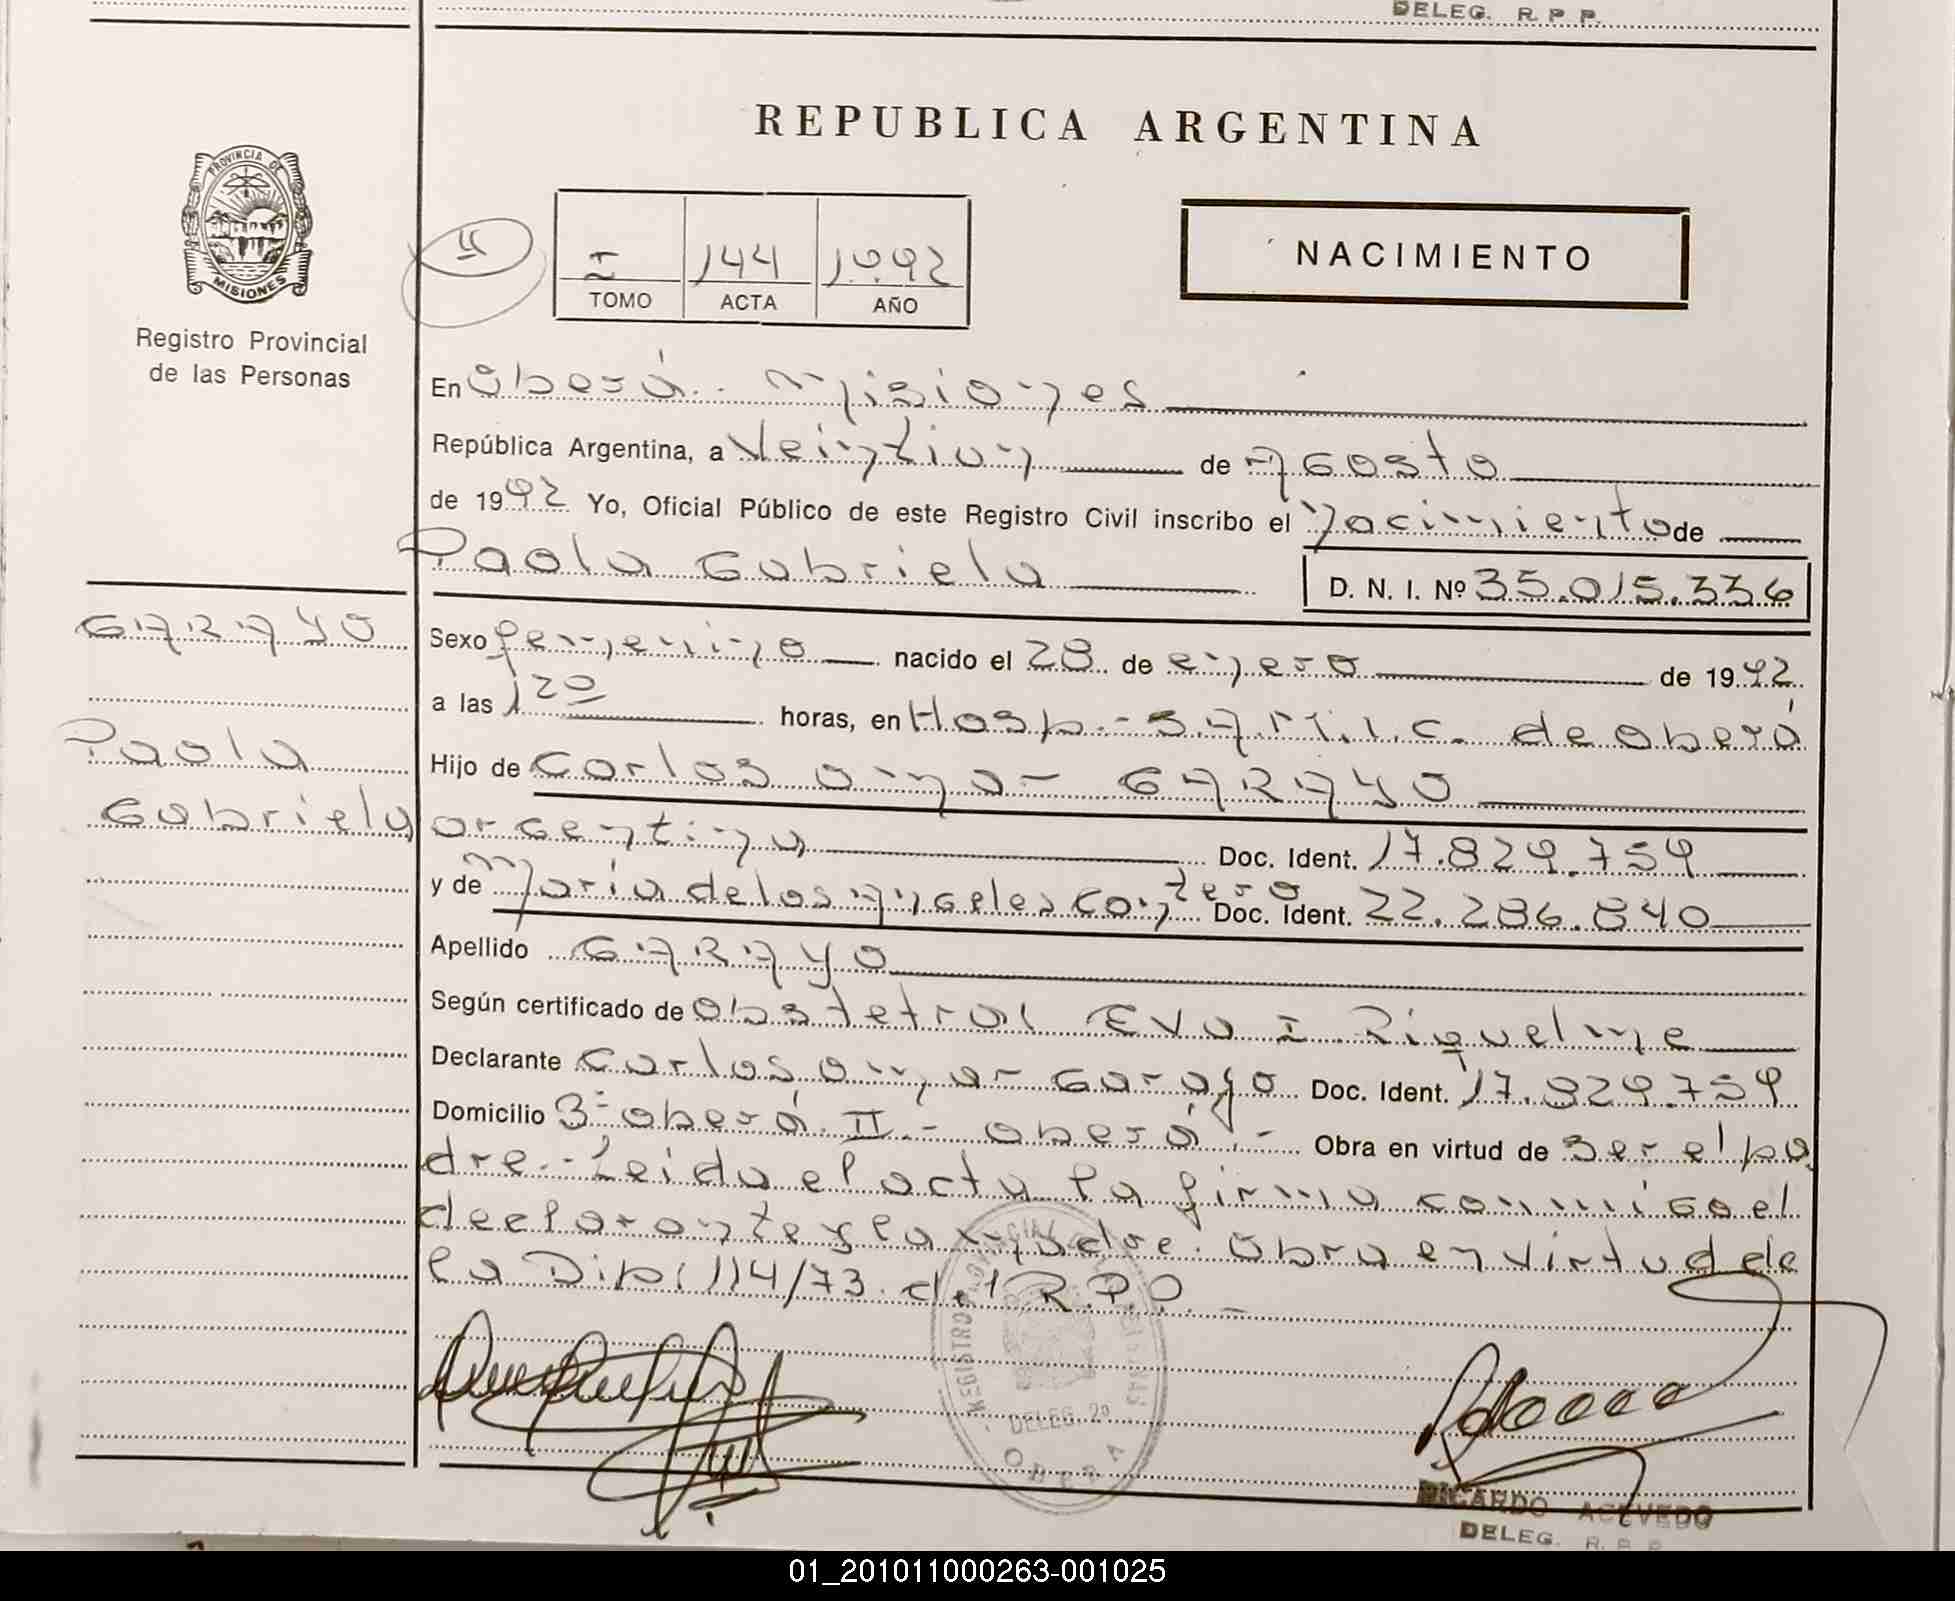 DELEG. R. P. P.
REPUBLICA ARGENTINA
PROVINCIA DE
MISIONES
Registro Provincial
de las Personas
I 144 1992
TOMO ACTA AÑO
NACIMIENTO
En Oberá. Misiones
República Argentina, a Veintiun de Agosto
de 1992 Yo, Oficial Público de este Registro Civil inscribo el Nacimiento de
Paola Gabriela D. N. I. Nº 35.015.336
GARAYO
Paola
Gabriela
Sexo femenino nacido el 28 de enero de 1992
a las 1 20 horas, en Hosp.- S.A.M.I.C. de Oberá
Hijo de Carlos Omar GARAYO
argentina Doc. Ident. 17.829.759
y de Maria de los Angeles Contero Doc. Ident. 22.286.840
Apellido GARAYO
Según certificado de Obstetral Eva I Riquelme
Declarante Carlos Omar Garayo Doc. Ident. 17.829.759
Domicilio Bº Oberá II.- Oberá.- Obra en virtud de ser el pa
dre.- Leida el acta la firma conmigo el
declarante y la madre. Obra en virtud de
la Disp. 114/73 del R.P.P. -
REGISTRO PROVINCIAL
DELEG. 2ª
OBERA
RICARDO ACEVEDO
DELEG. R. P. P.
01_201011000263-001025